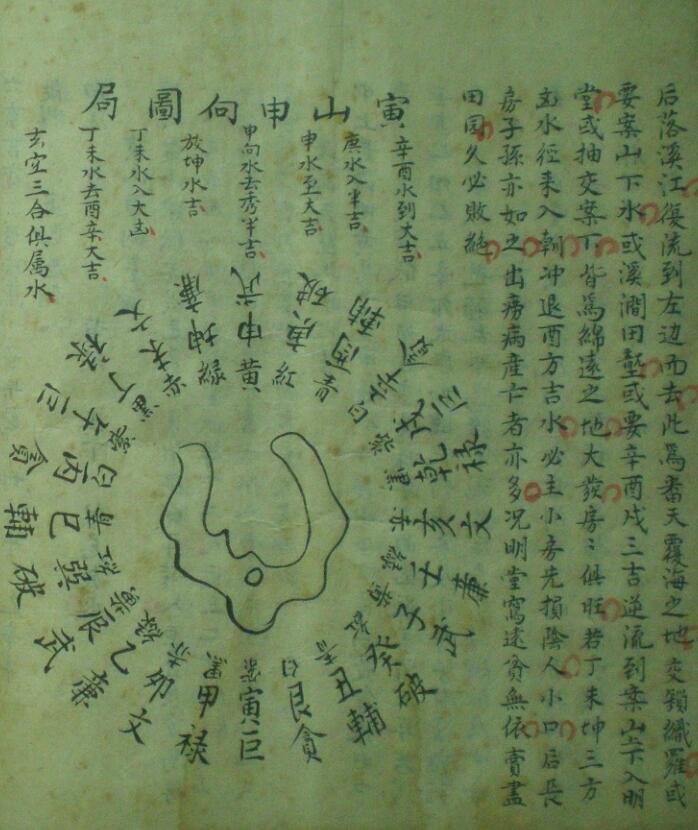 后落溪江復流到左边而去此爲番天覆海之地交鎖織羅或
要案山下水或溪澗田壟或要辛酉戍三吉逆流到案山下入明
堂或抽交案下皆爲綿遠之地大發房〻俱旺若丁未坤三方
凶水徑来入朝冲退酉方吉水必主小房先損陰人小口后長
房子孫亦如之出癆病産亡者亦多况明堂寫遠貧無依賣盡
田园久必敗絶
寅山申向圖局
辛酉水到大吉
庚水入半吉
申水至大吉
申向水去秀半吉
放坤水吉
丁未水入大凶
丁未水去酉辛大吉
玄空三合俱属水
武申黄
破庚紅
輔酉青
辛白
巨戍紫
禄乾黑
文亥赤
廉壬緑
武子黄
破癸紅
輔丑青
貪艮白
巨寅紫
禄甲黑
文卯赤
廉乙緑
武辰
破巽紅
輔巳
貪丙白
巨午紫
禄丁黑
文未赤
廉坤緑